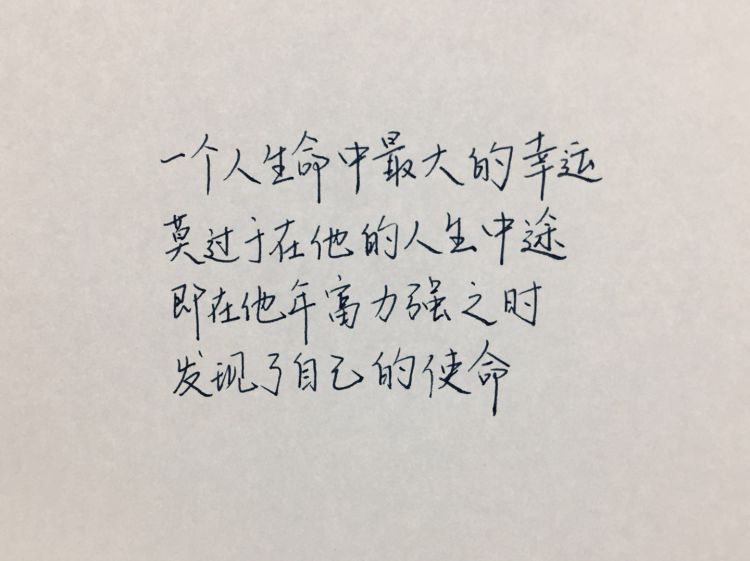 一个人生命中最大的幸运
莫过于在他的人生中途
即在他年富力强之时
发现了自己的使命